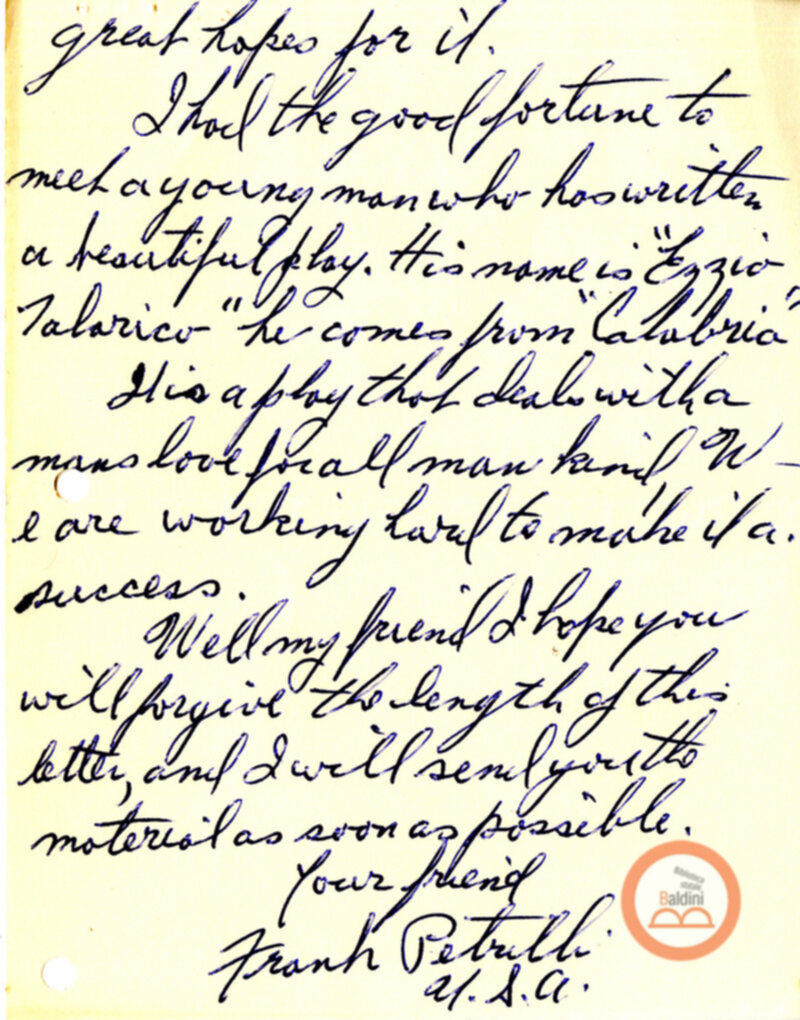 great hopes for it.
I had the good fortune to
meet a young man who has written
a beautiful play. His name is "Ezzio
Talarico" he comes from "Calabria"
It is a play that deals with a
mans love for all man kind, W-
e are working hard to make it a.
success.
Well my friend I hope you
will forgive the length of this
letter, and I will send you the
material as soon as possible.
Your friend
Frank Petrulli
U.S.A.
Biblioteca
statale
Baldini